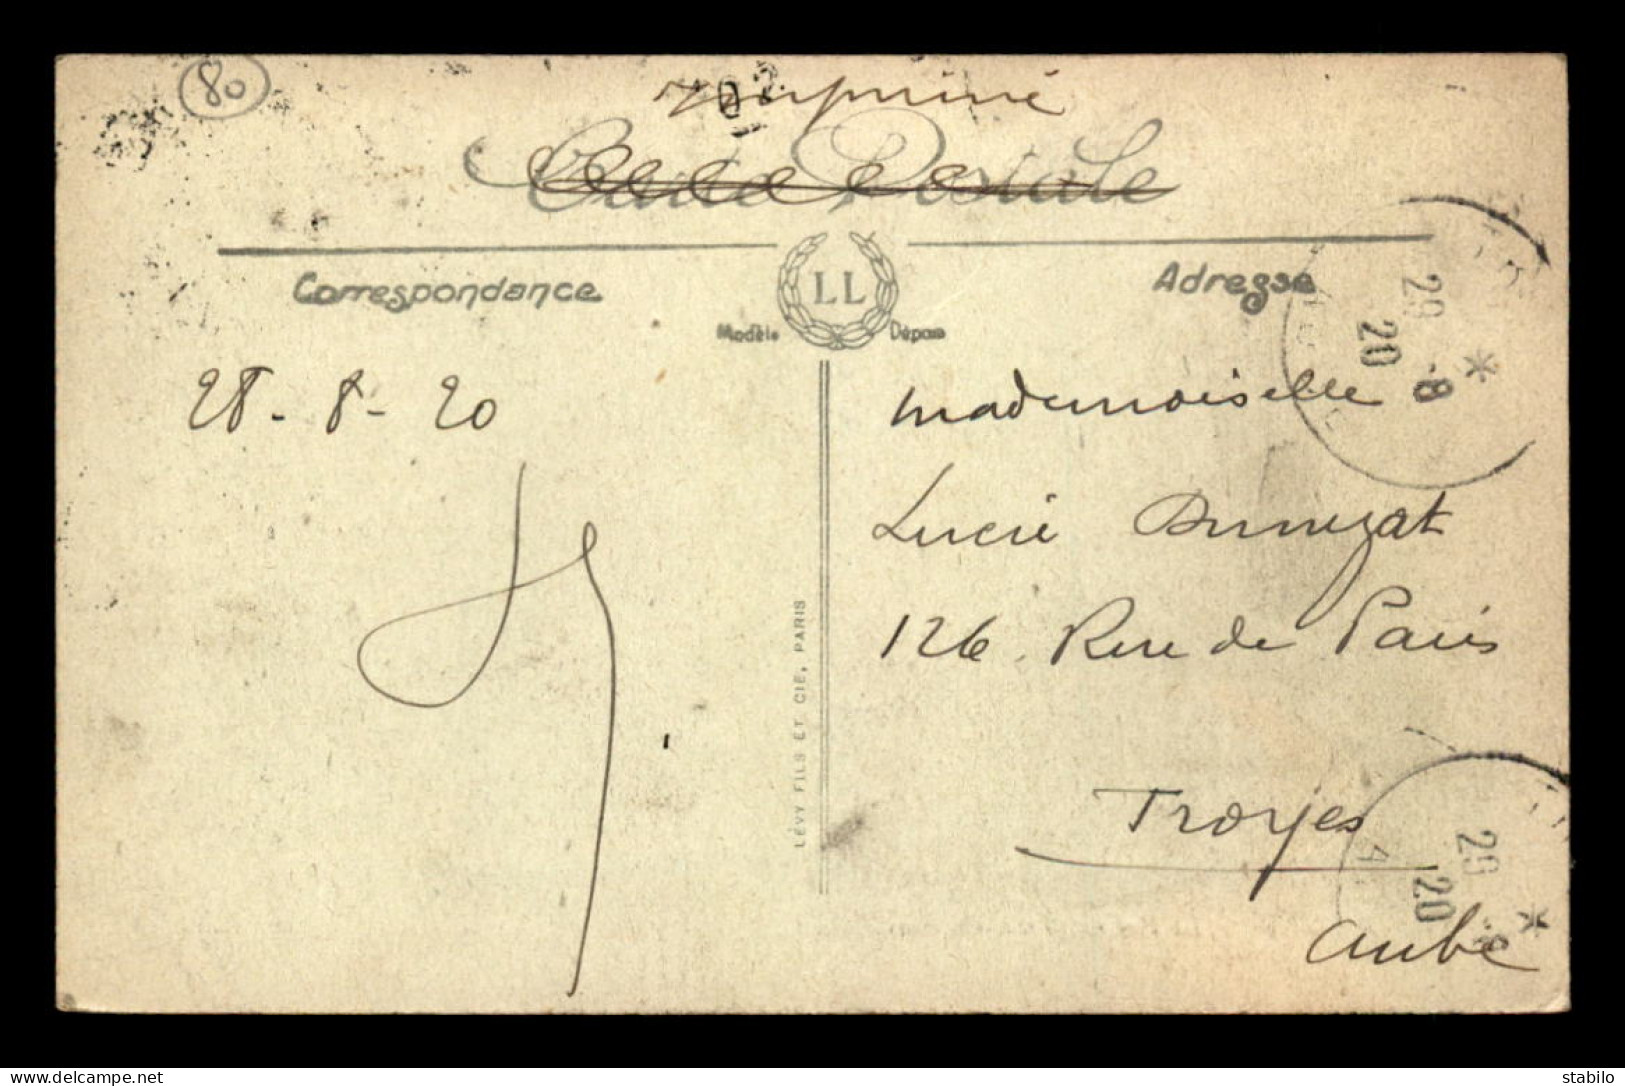 80
imprimé
Carte Postale
Correspondance
LL
Adresse
Modèle Déposé
29 8
20
28-8-20
Mademoiselle
Lucie
126 Rue de Paris
Troyes
Aube
LÉVY FILS ET CIE, PARIS
29 8
20
www.delcampe.net
stabilo